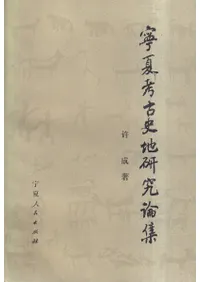 宁夏考古史地研究论集
许成著
宁夏人民出版社